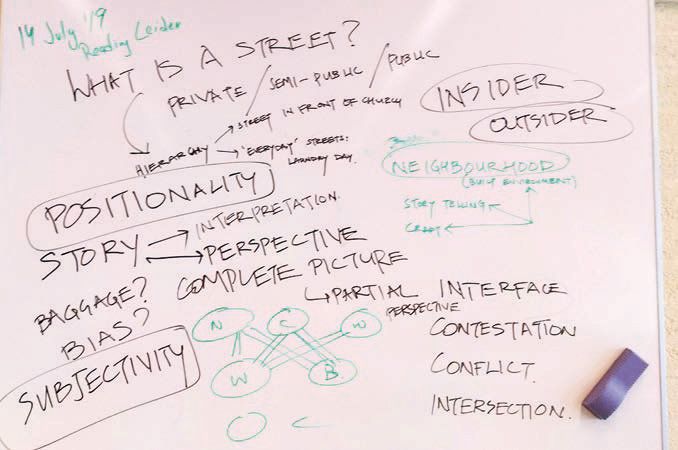 14 July '19
Reading Leiden
WHAT IS A STREET?
PRIVATE / SEMI-PUBLIC / PUBLIC
HIERARCHY
STREET IN FRONT OF CHURCH
"EVERYDAY" STREETS:
LAUNDRY DAY.
INSIDER
OUTSIDER
NEIGHBOURHOOD
(BUILT ENVIRONMENT)
STORY TELLING
CRAFT
POSITIONALITY
STORY
INTERPRETATION.
PERSPECTIVE
COMPLETE PICTURE
PARTIAL
PERSPECTIVE
BAGGAGE?
BIAS?
SUBJECTIVITY
N C W
W B
INTERFACE
CONTESTATION
CONFLICT.
INTERSECTION.